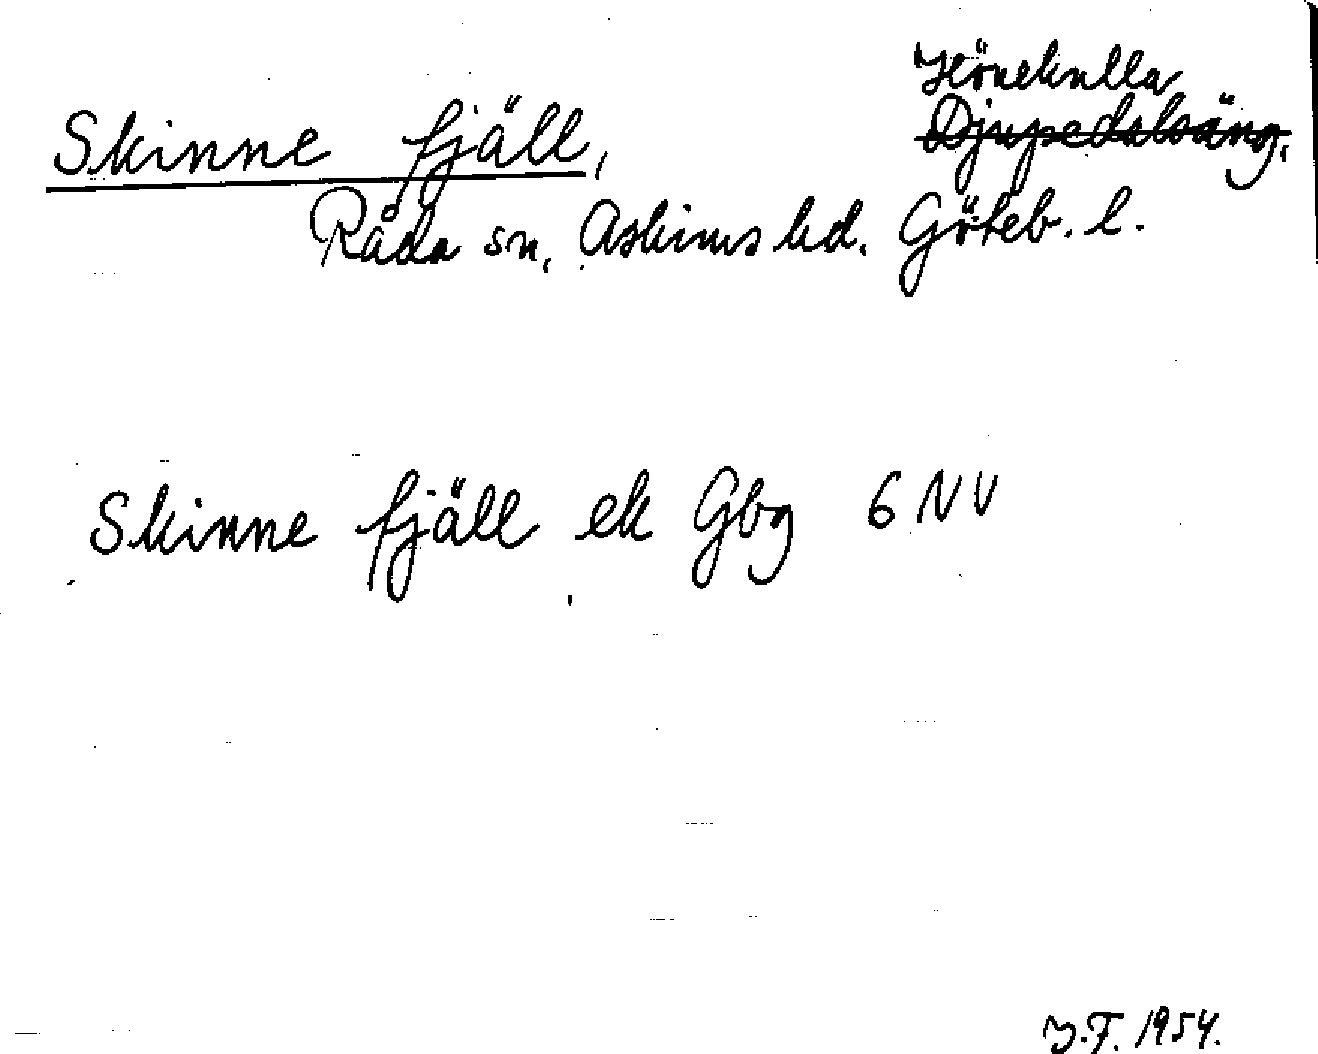 Hönekulla
Skinne fjäll, Djupedalsäng,
Råda sn, Askims hd. Göteb. l.
Skinne fjäll ek Gbg 6 NV
J.F. 1954.